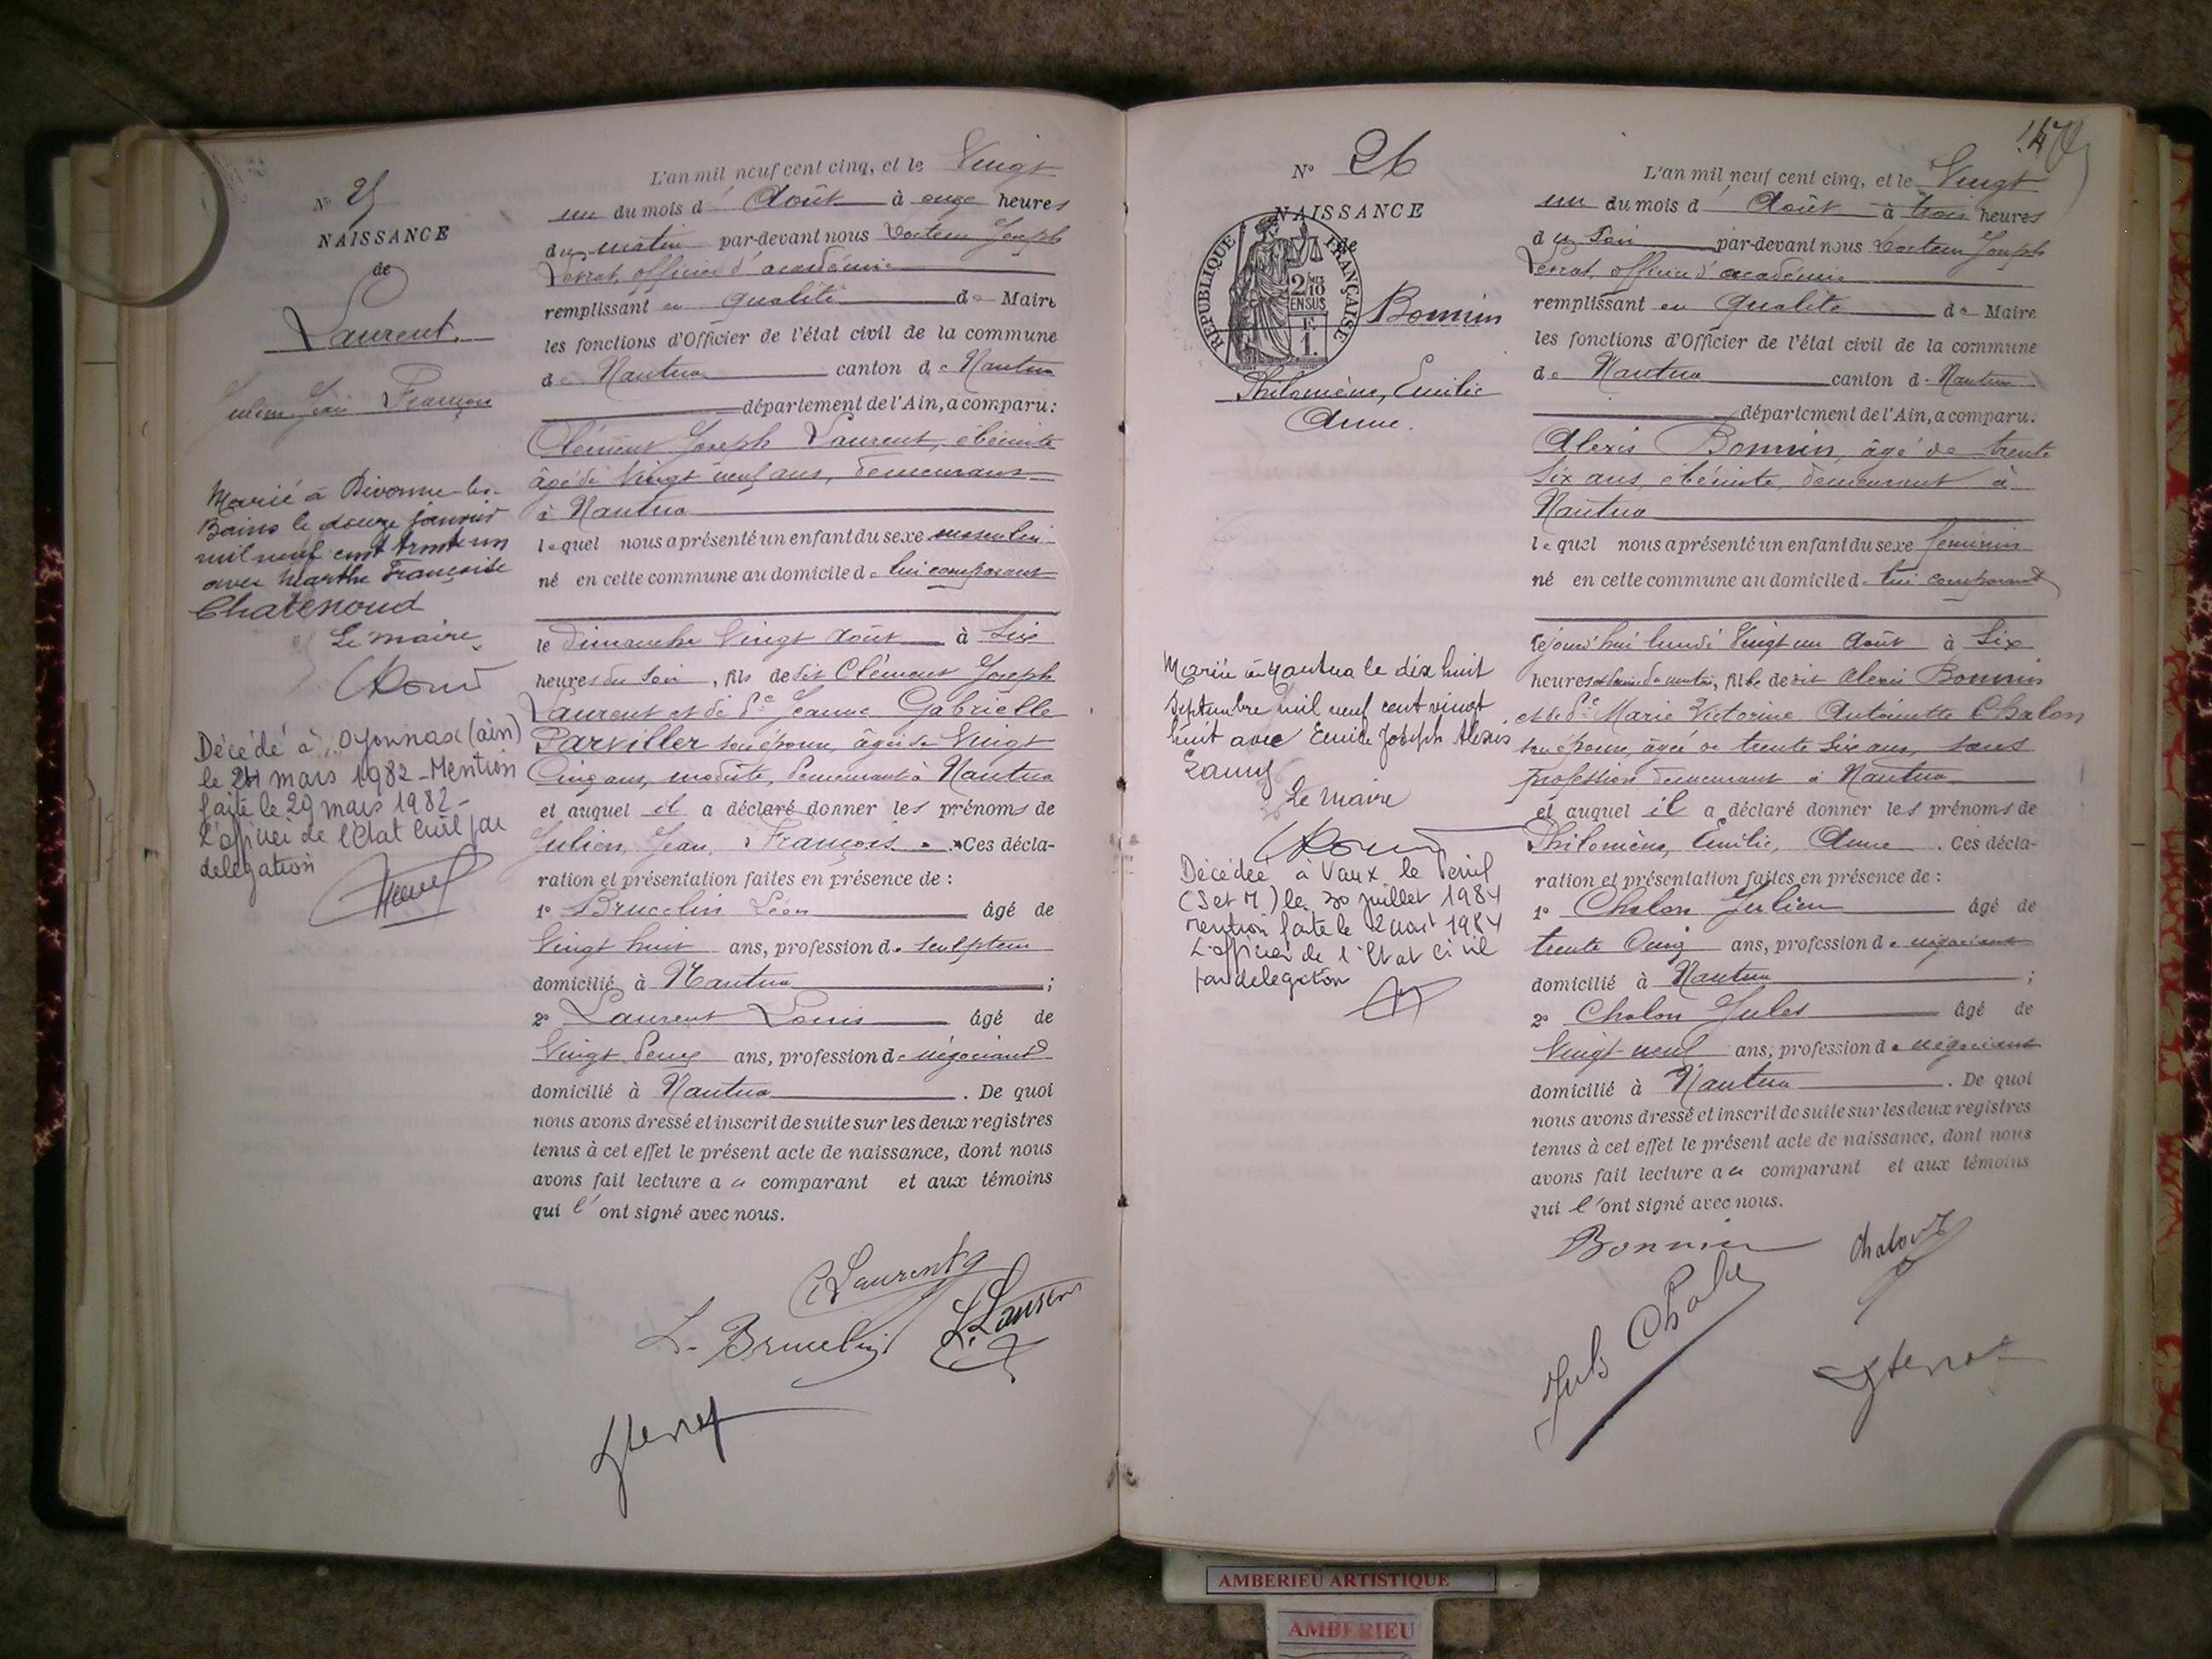 N° 25
NAISSANCE
de
Laurent.
Julien Jean François
Marié à Divonne-les-
Bains le douze janvier
mil neuf cent trente un
avec Marthe Françoise
Chatenoud
Le maire,
Décédé à Oyonnax (ain)
le 24 mars 1982 - Mention
faite le 29 mars 1982 -
L'officier de l'Etat Civil par
delegation
L'an mil neuf cent cinq, et le Vingt
un du mois d' Août à onze heures
du matin par-devant nous Docteur Joseph
officier d'académie
remplissant en qualité de Maire
les fonctions d'Officier de l'état civil de la commune
de Nantua canton de Nantua
département de l'Ain, a comparu:
Clément Joseph Laurent, ébéniste
âgé de Vingt neuf ans, demeurant
à Nantua
lequel nous a présenté un enfant du sexe masculin
né en cette commune au domicile de lui comparant
le dimanche Vingt Août à Six
heures du soir, fils de dit Clément Joseph
Laurent et de De Jeanne Gabrielle
Parviller son épouse, âgée de Vingt
Cinq ans, modiste, demeurant à Nantua
et auquel il a déclaré donner les prénoms de
Julien, Jean, François. Ces décla-
ration et présentation faites en présence de :
1° Brucelin Léon âgé de
Vingt huit ans, profession de sculpteur
domicilié à Nantua ;
2° Laurent Louis âgé de
Vingt deux ans, profession de négociant
domicilié à Nantua . De quoi
nous avons dressé et inscrit de suite sur les deux registres
tenus à cet effet le présent acte de naissance, dont nous
avons fait lecture au comparant et aux témoins
qui l'ont signé avec nous.
C. Laurent
L. Brucelin L. Laurent
N° 26
NAISSANCE
de
REPUBLIQUE FRANÇAISE
2/10
EN SUS
F.
1.
Bonnin
Philomène, Emilie
Anne.
Mariée à Nantua le dix huit
Septembre mil neuf cent vingt
huit avec Emile Joseph Alexis
Le Maire
Décédée à Vaux le Penil
(S et M) le 30 juillet 1984
mention faite le 2 aout 1984
L'officier de l'Etat Civil
par delegation
L'an mil neuf cent cinq, et le Vingt
un du mois d' Août à trois heures
du soir par-devant nous Docteur Joseph
officier d'académie
remplissant en qualité de Maire
les fonctions d'Officier de l'état civil de la commune
de Nantua canton de Nantua
département de l'Ain, a comparu:
Alexis Bonnin, âgé de trente
Six ans, ébéniste, demeurant à
Nantua
lequel nous a présenté un enfant du sexe féminin
né en cette commune au domicile de lui comparant
cejourd'hui lundi Vingt un Août à Six
heures et demie du matin, fille de dit Alexis Bonnin
et de De Marie Victorine Antoinette Chalon
son épouse, âgée de trente Six ans, sans
profession demeurant à Nantua
et auquel il a déclaré donner les prénoms de
Philomène, Emilie, Anne . Ces décla-
ration et présentation faites en présence de :
1° Chalon Julien âgé de
trente Cinq ans, profession de négociant
domicilié à Nantua ;
2° Chalon Jules âgé de
Vingt-neuf ans, profession de négociant
domicilié à Nantua . De quoi
nous avons dressé et inscrit de suite sur les deux registres
tenus à cet effet le présent acte de naissance, dont nous
avons fait lecture au comparant et aux témoins
qui l'ont signé avec nous.
Bonnin Chalon
Jules Chalon
AMBERIEU ARTISTIQUE
AMBERIEU